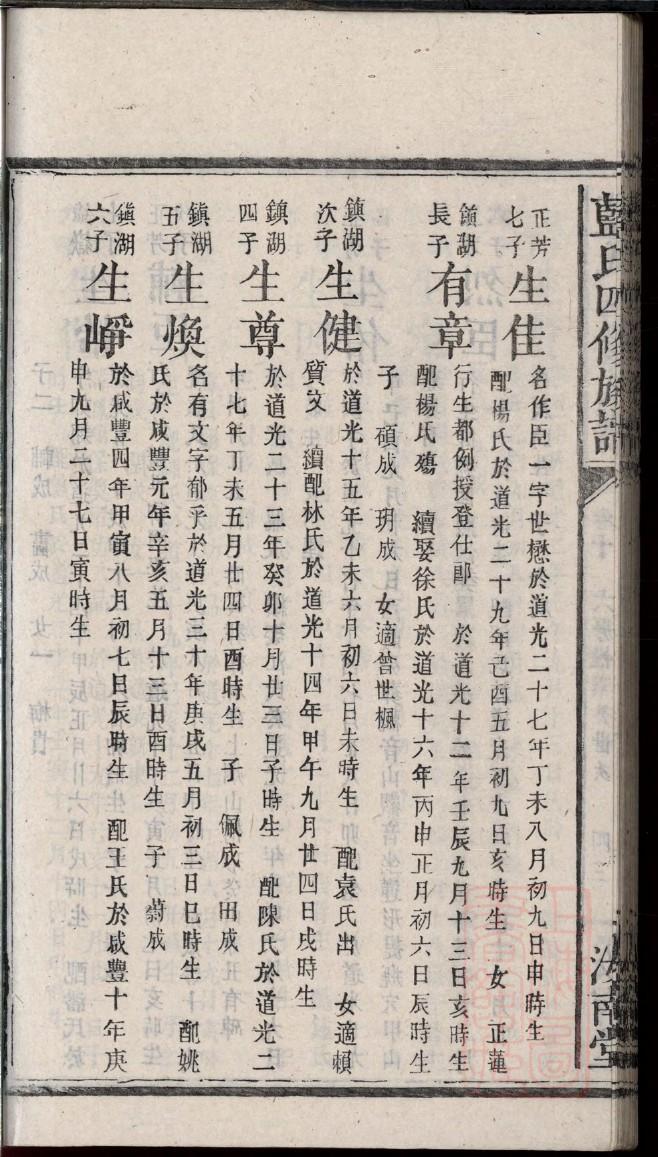 藍氏四修族譜
正芳七子 生佳 名作臣一字世懋於道光二十七年丁未八月初九日申時生
配楊氏於道光二十九年己酉五月初九日亥時生 女 正蓮
鎮湖長子 有章 行生都例授登仕郎 於道光十二年壬辰九月十三日亥時生
配楊氏殤 續娶徐氏於道光十六年丙申正月初六日辰時生
子 碩成 玥成 女適曾世楓
鎮湖次子 生健 於道光十五年乙未六月初六日未時生 配袁氏出 女適賴
質文 續配林氏於道光十四年甲午九月廿四日戌時生
鎮湖四子 生尊 於道光二十三年癸卯十月廿三日子時生 配陳氏於道光二
十七年丁未五月廿四日酉時生 子 佩成 田成
鎮湖五子 生煥 名有文字郁乎於道光三十年庚戌五月初三日巳時生 配姚
氏於咸豐元年辛亥五月十三日酉時生 子 蒭成
鎮湖六子 生崢 於咸豐四年甲寅八月初七日辰時生 配王氏於咸豐十年庚
申九月二十七日寅時生